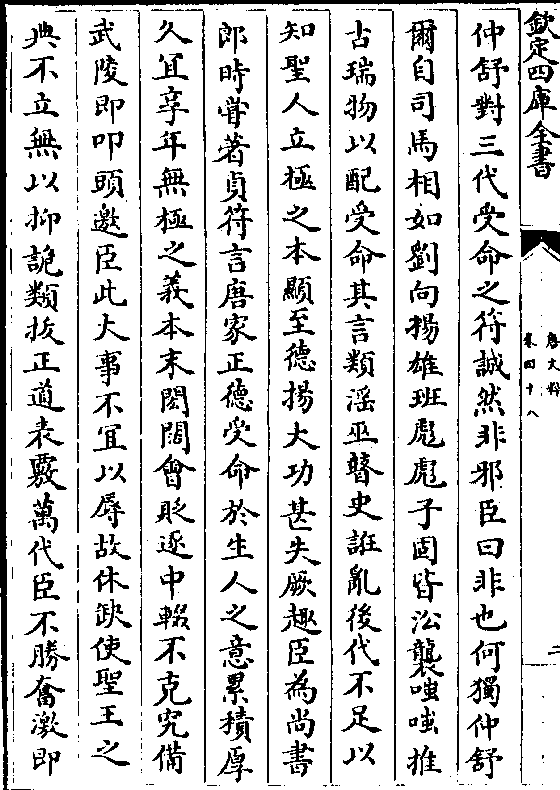 欽定四庫全書
唐文粹
卷四十八
二
仲舒對三代受命之符誠然非邪臣曰非也何獨仲舒
爾自司馬相如劉向揚雄班彪彪子固皆沿襲嗤嗤推
古瑞物以配受命其言類淫巫瞽史誑亂後代不足以
知聖人立極之本顯至德揚大功甚失厥趣臣為尚書
郎時嘗著貞符言唐家正德受命於生人之意累積厚
久宜享年無極之義本末閎闊會貶逐中輟不克究備
武陵即叩頭邀臣此大事不宜以辱故休缺使聖王之
典不立無以抑詭類拔正道表覈萬代臣不勝奮激即